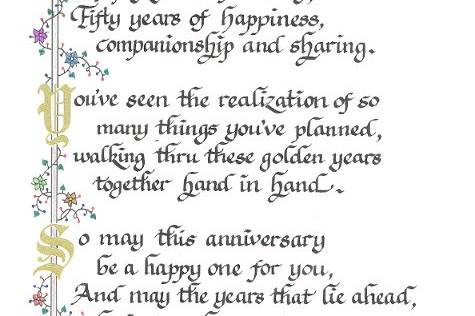 Fifty years of happiness,
companionship and sharing.
You've seen the realization of so
many things you've planned,
walking thru these golden years
together hand in hand.
So may this anniversary
be a happy one for you,
And may the years that lie ahead,